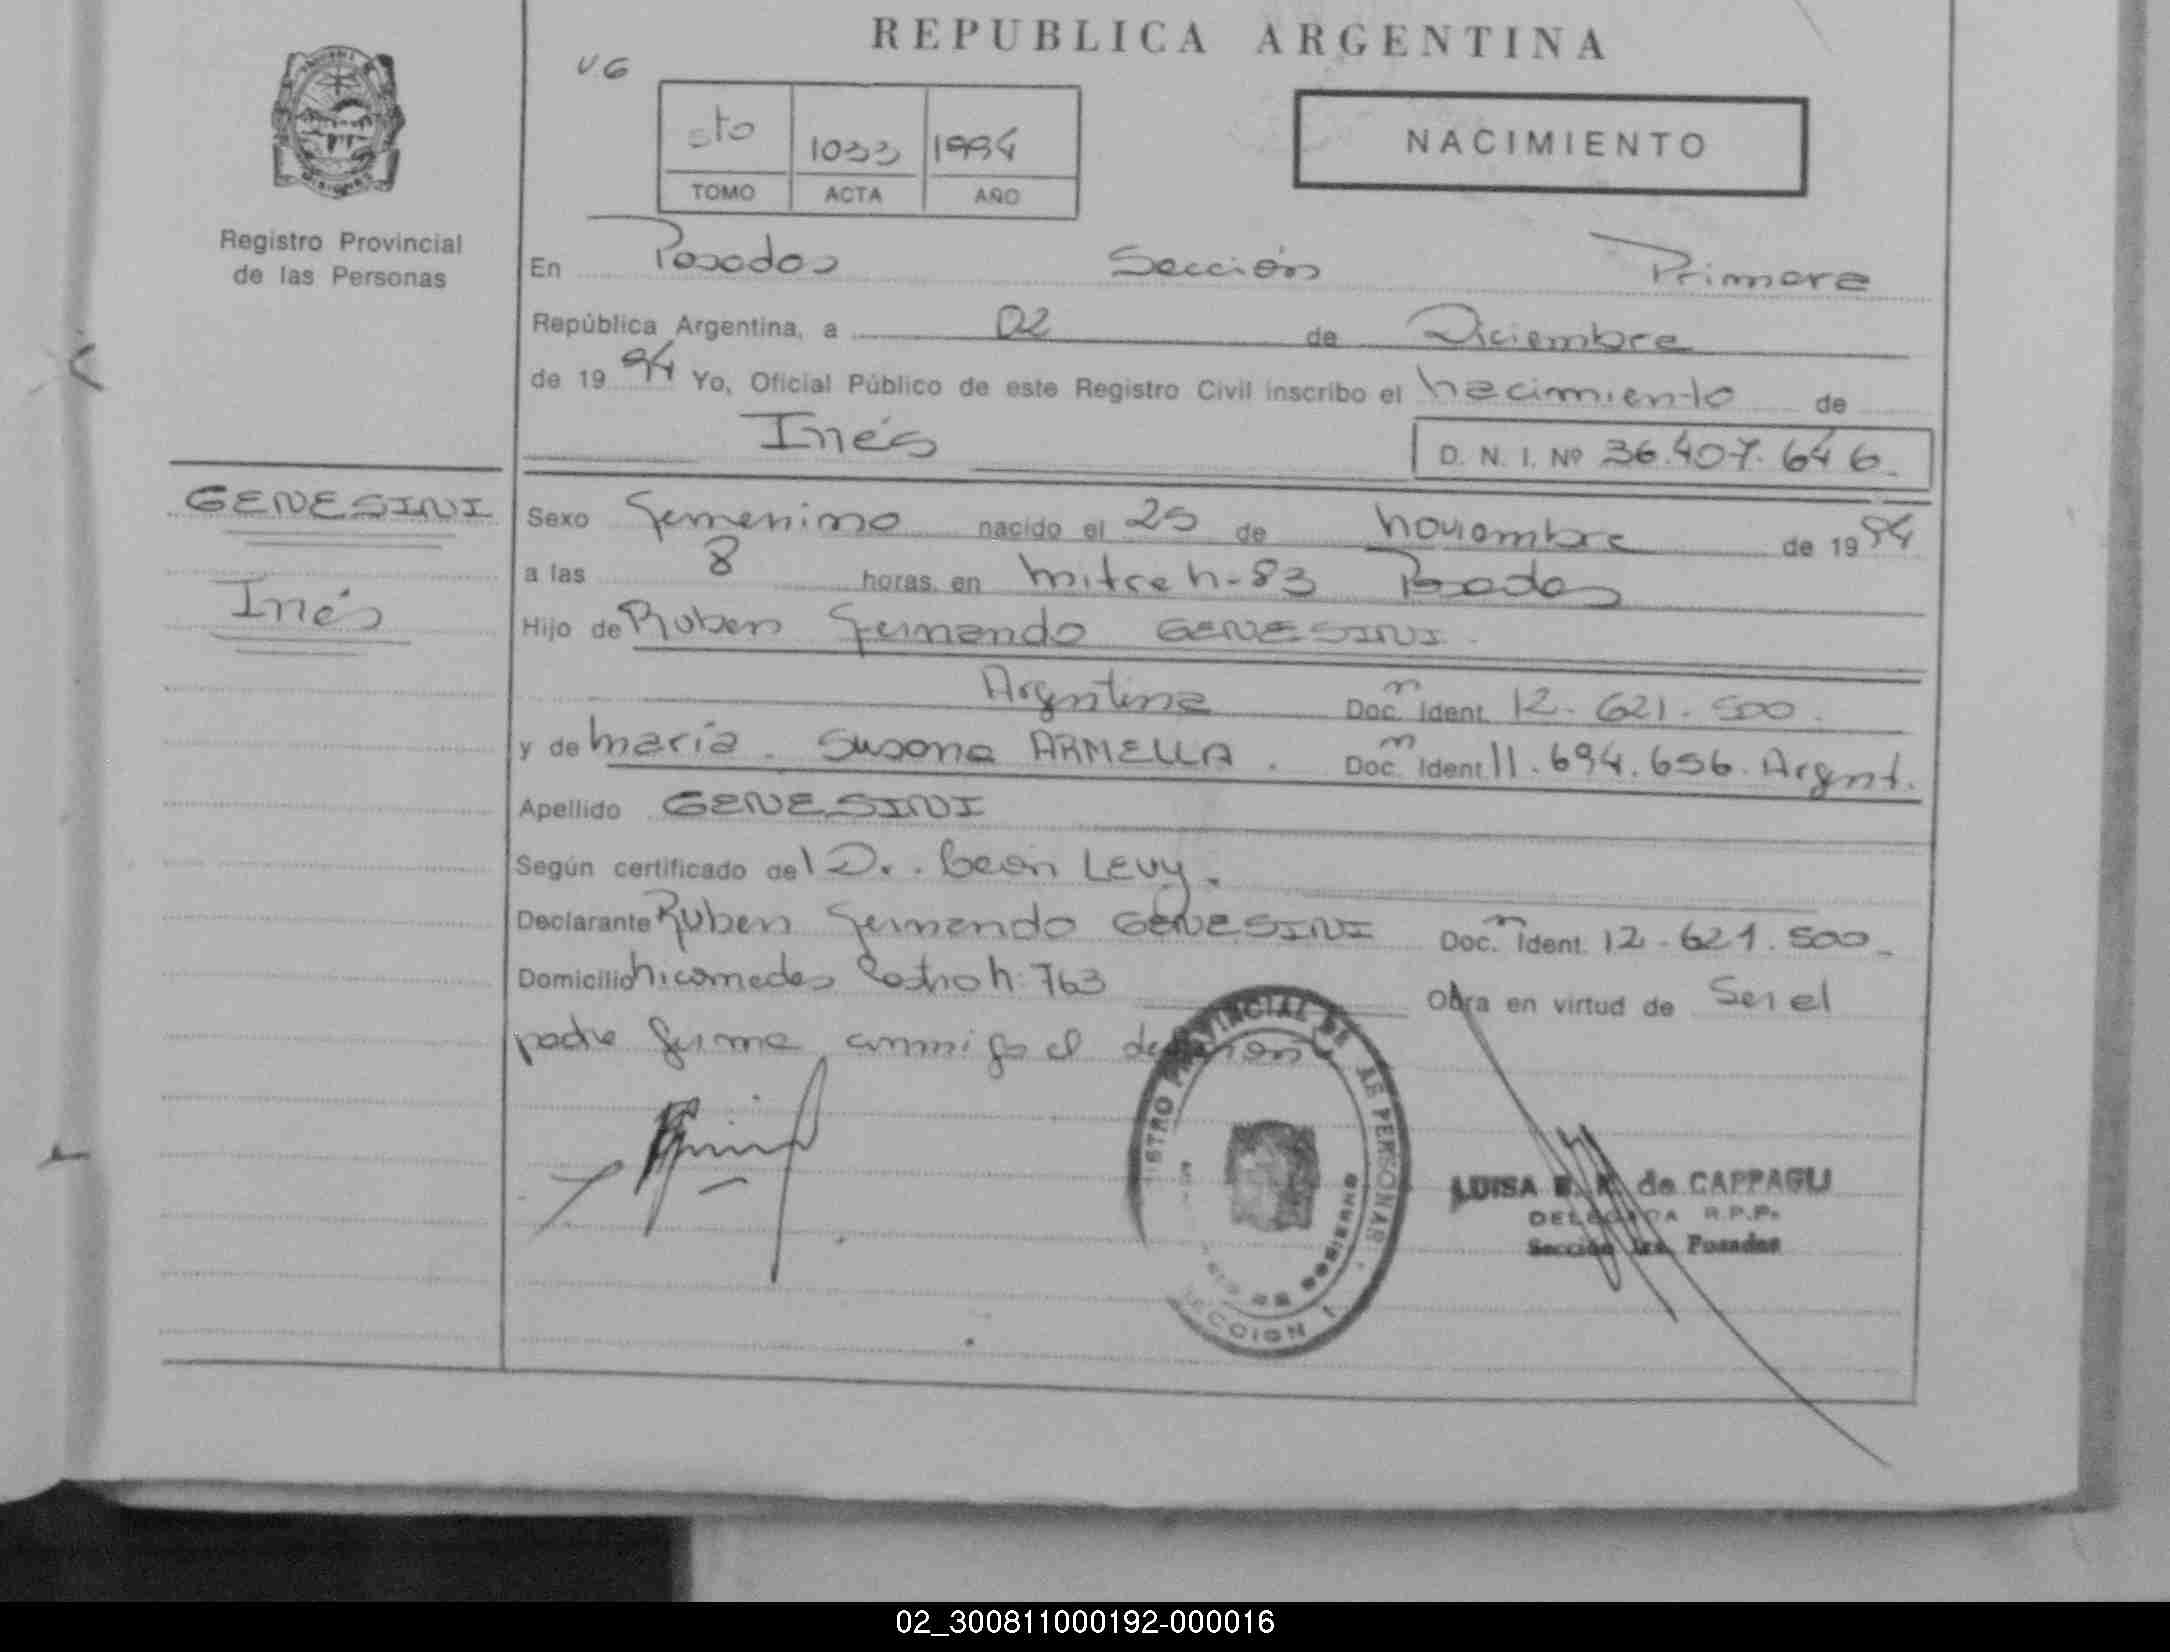 REPUBLICA ARGENTINA
V6
5to 1033 1994
TOMO ACTA AÑO
NACIMIENTO
Registro Provincial
de las Personas
En Posadas Sección Primera
República Argentina, a 02 de Diciembre
de 1994 Yo, Oficial Público de este Registro Civil inscribo el nacimiento de
Inés
D. N. I. Nº 36.407.646
GENESINI
Inés
Sexo femenino nacido el 25 de noviembre de 1994
a las 8 horas, en mitre n-83 Posadas
Hijo de Ruben Fernando GENESINI.
Argentina Doc. Ident. 12.621.500.
y de María Susana ARMELLA. Doc. Ident. 11.694.656. Argent.
Apellido GENESINI
Según certificado del Dr. León Levy.
Declarante Ruben Fernando GENESINI Doc. Ident. 12.621.500
Domicilio nicomedes Castro n: 763 Obra en virtud de Ser el
padre firma conmigo el
PROVINCIAL DE PERSONAS
GOBIERNO
SECCION 1
LUISA de CAPPAGLI
DELEGADA R.P.P.
Sección 1ra. Posadas
02_300811000192-000016